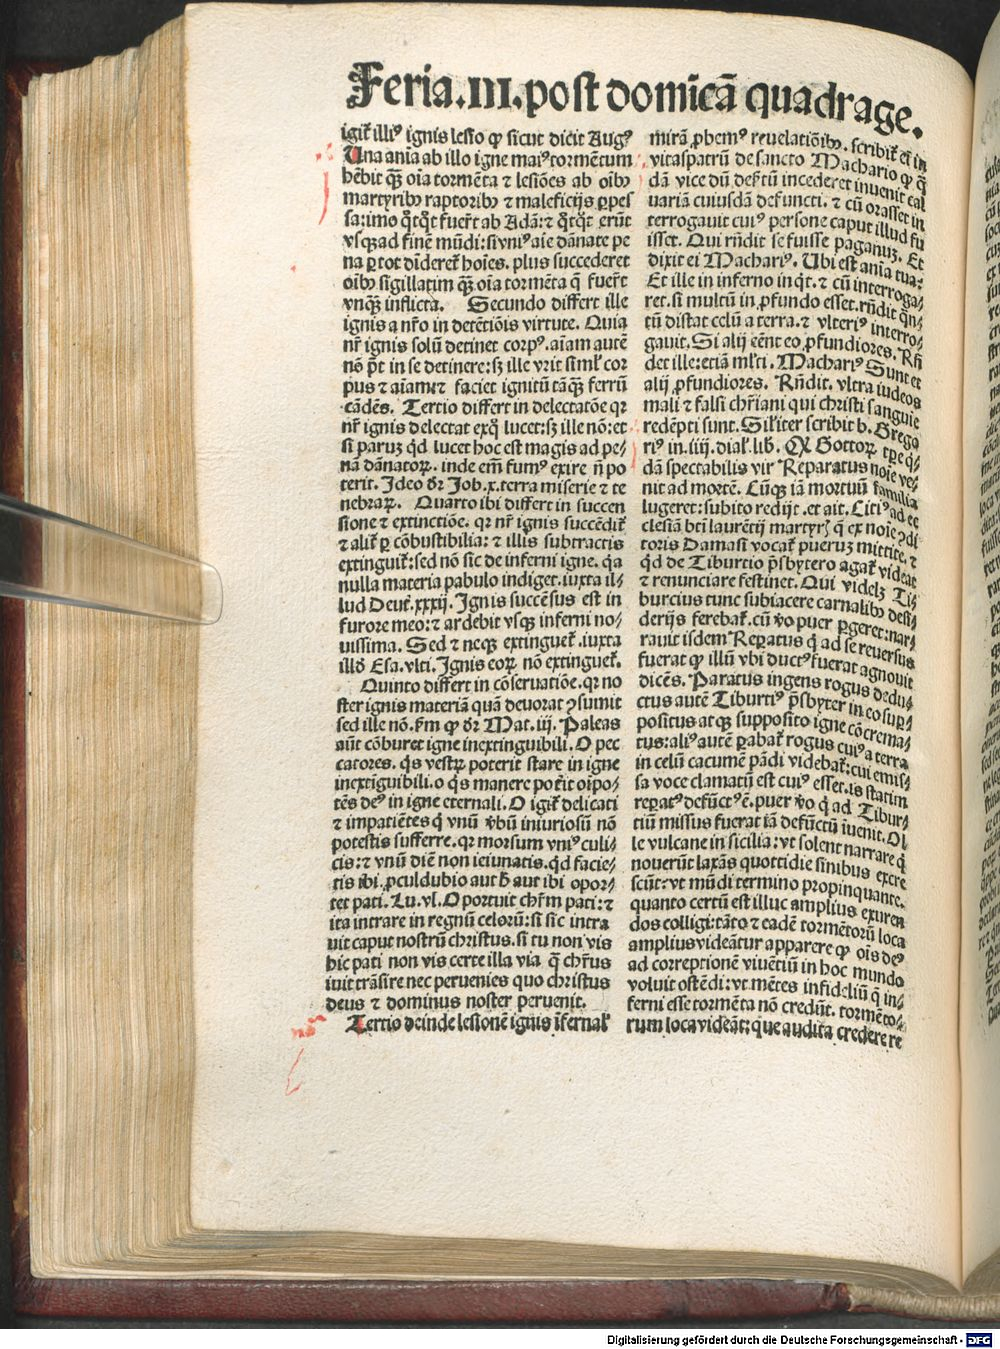 Feria.III.post domĩcã quadrage.
igit̃ illiꝰ ignis lesio ꝙ sicut dicit Augꝰ
Una aĩa ab illo igne maiꝰ tormẽtum
hẽbit q̃ꝫ oĩa tormẽta ⁊ lesiões ab oĩbꝫ
martyribꝫ raptoribꝫ ⁊ maleficijs ꝑpes
sa: imo q̃tq̃t fuer̃t ab Adã: ⁊ q̃tq̃t erũt
vsqꝫ ad finẽ mũdi: si vniꝰ aĩe dãnate pe
na ꝑ tot dĩderet̃ hoĩes. plus succederet
oĩbꝫ sigillatim q̃ꝫ oĩa tormẽta q̃ fuer̃t
vnq̃ꝫ inflicta. Secundo differt ille
ignis a nr̃o in detẽtiõis virtute. Quia
nr̃ ignis solũ detinet corpꝰ. aĩam autẽ
nõ põt in se detinere: sꝫ ille vrit siml̃ cor
pus ⁊ aĩam ⁊ faciet ignitũ tãq̃ꝫ ferrũ
cãdẽs. Tertio differt in delectatõe qꝛ
nr̃ ignis delectat exq̃ lucet: sꝫ ille nõ: et
si paruꝫ qd̃ lucet hoc est magis ad pe-
nã dãnatoꝝ. inde em̃ fumꝰ exire ñ po
terit. Ideo dꝛ̃ Job.x. terra miserie ⁊ te
nebraꝝ. Quarto ibi differt in succen
sione ⁊ extinctiõe. qꝛ nr̃ ignis succẽdit̃
⁊ alit̃ ꝑ cõbustibilia: ⁊ illis subtractis
extinguit̃: sed nõ sic de inferni igne. q̃a
nulla materia pabulo indiget. iuxta il-
lud Deut̃. xxxij. Ignis succẽsus est in
furore meo: ⁊ ardebit vsqꝫ inferni no-
uissima. Sed ⁊ neqꝫ extinguet̃. iuxta
illd̃ Esa. vlti. Ignis eoꝝ nõ extinguet̃.
Quinto differt in cõseruatiõe. qꝛ no
ster ignis materiã quã deuorat ꝯsumit
sed ille nõ. Fm̃ ꝙ dꝛ̃ Mat. iij. Paleas
aũt cõburet igne inextinguibili. O pec
catores. q̃s vestꝝ poterit stare in igne
inextĩguibili. o q̃s manere pot̃it oĩpo-
tẽs deꝰ in igne eternali. O igit̃ delicati
⁊ impatiẽtes q̃ vnũ ṽbũ iniuriosũ nõ
potestis sufferre. qꝛ morsum vniꝰ culi-
cis: ⁊ vnũ diẽ non ieiunatis. qd̃ facie-
tis ibi. ꝓculdubio aut h̃ aut ibi opor-
tet pati. Lu. vl. Oportuit chr̃m pati: ⁊
ita intrare in regnũ celorũ: si sic intra
uit caput nostrũ christus. si tu non vis
hic pati non vis certe illa via q̃ chr̃us
iuit trãsire nec peruenies quo christus
deus ⁊ dominus noster peruenit.
Tertio deinde lesionẽ ignis ĩfernal̃
mirã ꝓbemꝰ reuelatiõibꝫ. scribit̃ eĩ in
vitaspatrũ de sancto Machario ꝙ q̃
dã vice dũ desertũ incederet inuenit cal
uariã cuiusdã defuncti. ⁊ cũ orasset in
terrogauit cuiꝰ persone caput illud fu
isset. Qui rñdit se fuisse paganuꝫ. Et
dixit ei Machariꝰ. Ubi est anĩa tua:
Et ille in inferno inq̃t. ⁊ cũ interroga-
ret. si multũ in ꝓfundo esset. rñdit q̃n-
tũ distat celũ a terra. ⁊ vlteriꝰ interro-
gauit. Si alij eẽnt eo ꝓfundiores. Rñ
det ille: etiã ml̃ti. Machariꝰ Sunt et
alij ꝓfundiores. Rñdit. vltra iudeos
mali ⁊ falsi chr̃iani qui christi sanguie
redẽpti sunt. Sil̃iter scribit b. Grego
riꝰ in. iiij. dial. lib. Qꝫ Gottoꝝ tꝑe q̃-
dã spectabilis vir Reparatus noĩe ve-
nit ad mortẽ. Cũqꝫ iã mortuũ familia
lugeret: subito redijt. et ait. Citiꝰ ad ec
clesiã bt̃i laurẽtij martyrꝭ q̃ ex noĩe ꝯdi
toris Damasi vocat̃ pueruꝫ mittite. ⁊
qd̃ de Tiburtio p̃sbytero agat̃ videat
⁊ renunciare festinet. Qui videlꝫ Ti-
burcius tunc subiacere carnalibꝫ desi-
derijs ferebat̃. cũ ṽo puer ꝑgeret: nar-
rauit isdem Reꝑatus q̃ ad se reuersus
fuerat ꝙ illũ vbi ductꝰ fuerat agnouit
dicẽs. Paratus ingens rogus dedu-
ctus autẽ Tiburtiꝰ p̃sbyter in eo suꝑ-
positus atqꝫ supposito igne cõcrema-
tus: aliꝰ autẽ ꝑabat̃ rogus cuiꝰ a terra
in celũ cacumẽ pãdi videbat̃: cui emis-
sa voce clamatũ est cuiꝰ esset. is statim
reꝑatꝰ defũctꝰ ẽ. puer ṽo q̃ ad Tibur-
tiũ missus fuerat iã defũctũ iuenit. Ol
le vulcane in sicilia: vt solent narrare q̃
nouerũt laxãs quottidie sinibus excre
scũt: vt mũdi termino propinquante.
quanto certũ est illuc amplius exuren
dos colligi: tãto ⁊ eadẽ tormẽtorũ loca
amplius videãtur apparere ꝙ oĩs deꝰ
ad correptionẽ viuẽtiũ in hoc mundo
voluit ostẽdi: vt mẽtes infideliũ q̃ in-
ferni esse tormẽta nõ credũt. tormẽto-
rum loca videãt: que audita credere re
Digitalisierung gefördert durch die Deutsche Forschungsgemeinschaft - DFG